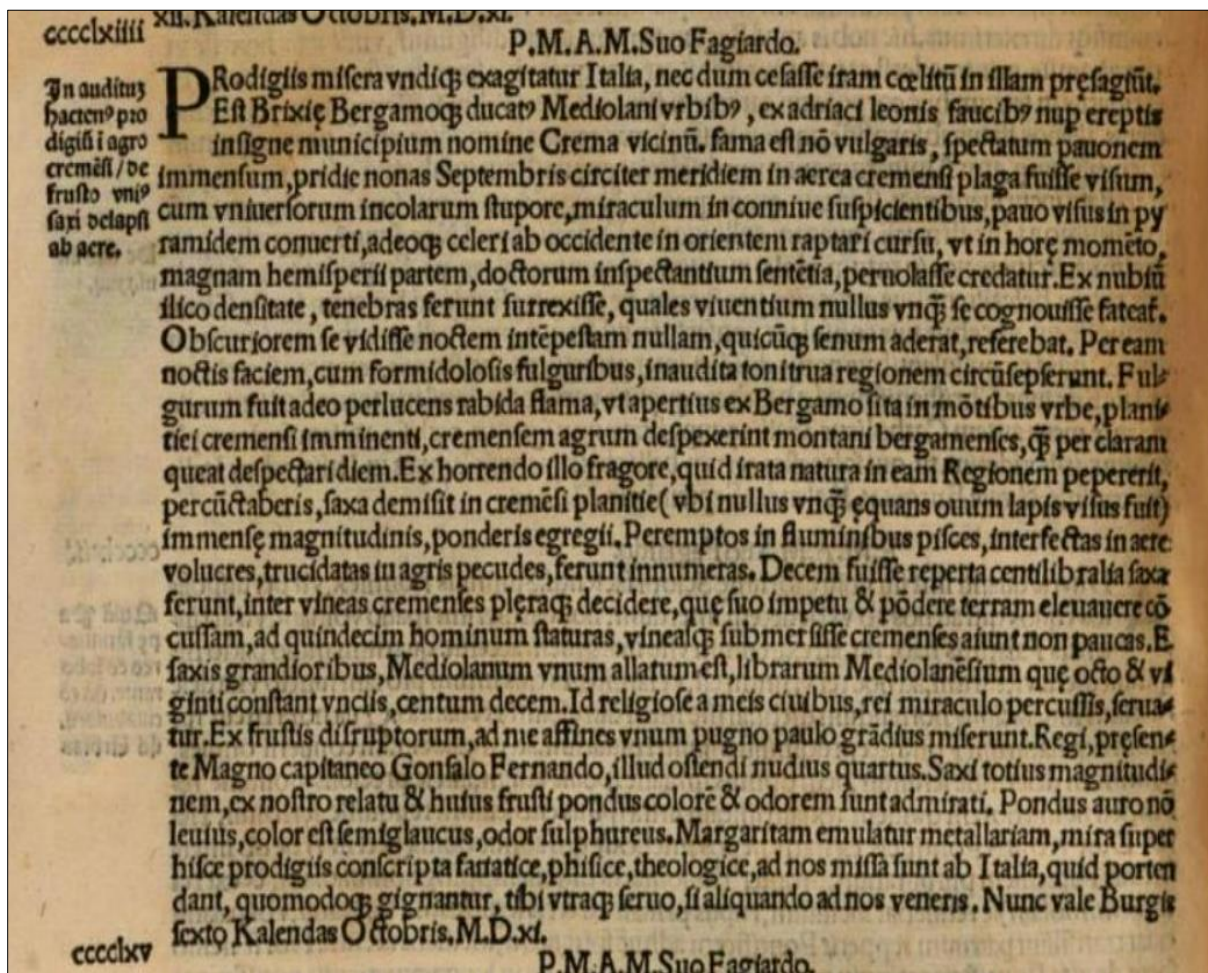 xii. Kalendas Octobris. M.D.xi.
cccclxiiii
P. M. A. M. Suo Fagiardo.
In audituʒ
hactenꝰ pro
digiũ i agro
cremẽsi / de
frusto vniꝰ
saxi delapsi
ab aere.
PRodigiis misera vndiqꝫ exagitatur Italia, nec dum cessasse iram cœlitũ in illam pręsagiũt.
Est Brixię Bergamoqꝫ ducatꝰ Mediolani vrbibꝰ, ex adriaci leonis faucibꝰ nup ereptis
insigne municipium nomine Crema vicinũ. fama est nõ vulgaris, spectatum pauonem
immensum, pridie nonas Septembris circiter meridiem in aerea cremensi plaga fuisse visum,
cum vniuersorum incolarum stupore, miraculum in conniue suspicientibus, pauo visus in py
ramidem conuerti, adeoqꝫ celeri ab occidente in orientem raptari cursu, vt in horę momẽto,
magnam hemisperii partem, doctorum inspectantium sentẽtia, peruolasse credatur. Ex nubiũ
ilico densitate, tenebras ferunt surrexisse, quales viuentium nullus vnq̃ se cognouisse fateat̃.
Obscuriorem se vidisse noctem intẽpestam nullam, quicũqꝫ senum aderat, referebat. Per eam
noctis faciem, cum formidolosis fulguribus, inaudita tonitrua regionem circũsepserunt. Ful-
gurum fuit adeo perlucens rabida flama, vt apertius ex Bergamo sita in mõtibus vrbe, plani-
tiei cremensi imminenti, cremensem agrum despexerint montani bergamenses, q̃ per claram
queat despectari diem. Ex horrendo illo fragore, quid irata natura in eam Regionem pepererit,
percũctaberis, saxa demisit in cremẽsi planitie ( vbi nullus vnq̃ ęquans ouum lapis visus fuit)
immensę magnitudinis, ponderis egregii. Peremptos in fluminibus pisces, interfectas in aere
volucres, trucidatas in agris pecudes, ferunt innumeras. Decem fuisse reperta centilibralia saxa
ferunt, inter vineas cremenses plęraqꝫ decidere, quę suo impetu & põdere terram eleuauere cõ
cussam, ad quindecim hominum staturas, vineasqꝫ submersisse cremenses aiunt non paucas. E
saxis grandioribus, Mediolanum vnum allatum est, librarum Mediolanẽsium quę octo & vi
ginti constant vnciis, centum decem. Id religiose a meis ciuibus, rei miraculo percussis, serua-
tur. Ex frustis disruptorum, ad me affines vnum pugno paulo grãdius miserunt. Regi, pręsen-
te Magno capitaneo Gonsalo Fernando, illud ostendi nudius quartus. Saxi totius magnitudi-
nem, ex nostro relatu & huius frusti pondus colorẽ & odorem sunt admirati. Pondus auro nõ
leuius, color est semiglaucus, odor sulphureus. Margaritam emulatur metallariam, mira super
hisce prodigiis conscripta fanatice, phisice, theologice, ad nos missa sunt ab Italia, quid porten
dant, quomodoqꝫ gignantur, tibi vtraqꝫ seruo, si aliquando ad nos veneris. Nunc vale Burgis
sexto Kalendas Octobris. M.D.xi.
cccclxv
P. M. A. M. Suo Fagiardo.